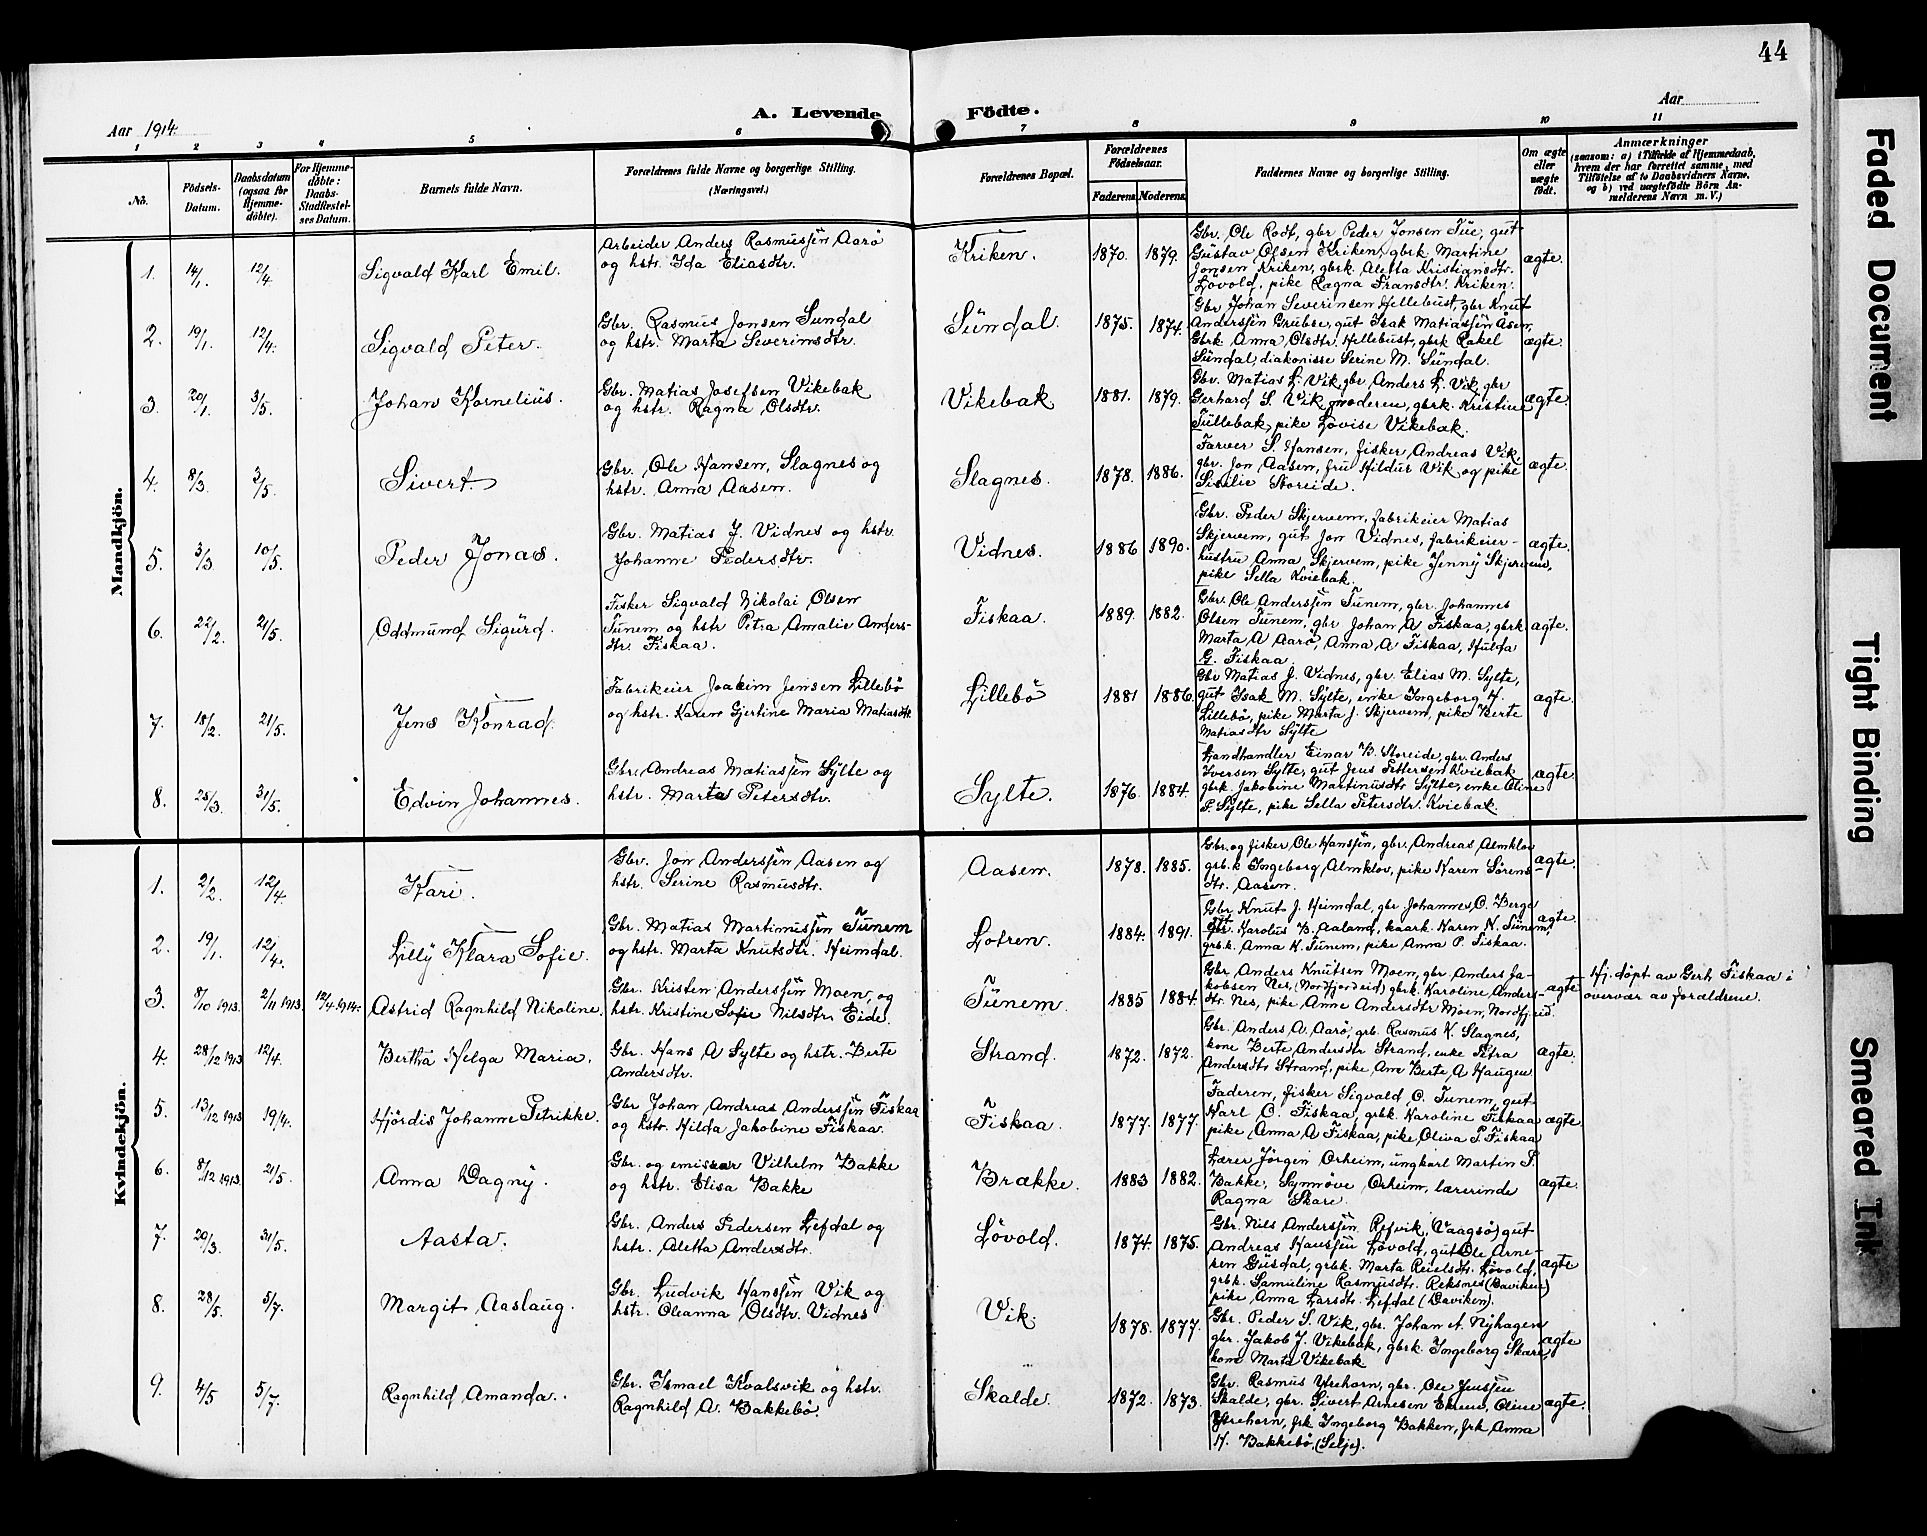 44
A. Levende Födte.
Aar 1914.
Aar
1 2 3 4 5 6 7 8 9 10 11
No.
Födsels-Datum.
Daabsdatum (ogsaa for Hjemme-döbte).
For Hjemme-döbte: Daabs-Stadfæstel-ses Datum.
Barnets fulde Navn.
Forældrenes fulde Navne og borgerlige Stilling.
(Næringsvei.)
Forældrenes Bopæl.
Forældrenes Födselsaar.
Faderens Moderens
Faddernes Navne og borgerlige Stilling.
Om ægte eller uægte födt.
Anmærkninger
(saasom: a) i Tilfælde af Hjemmedaab,
hvem der har forrettet samme, med
Tilföielse af to Daabsvidners Navne,
og b) ved uægtefödte Börn An-
melderens Navn m. V.)
Mandkjön.
1. 14/1. 12/4 Sigvald Karl Emil.
Arbeider Anders Rasmussen Aarö
og hstr. Ida Eliasdtr.
Kriken. 1870. 1879.
Gbr. Ole Rodt, gbr Peder Jonsen Tue, gut
Gustav Olsen Kriken, gbrk Martine
Jonsen Kriken, gbrk. Aletta Kristiansdtr.
Lövold, pike Ragna Fransdtr. Kriken.
ægte.
2. 19/1. 12/4. Sigvald Peter.
Gbr. Rasmus Jonsen Sundal
og hstr. Marta Severinsdtr.
Sundal. 1875. 1874.
Gbr Johan Severinsen Hellebust, gbr Knut
Anderssen Grubse, gut Isak Matiassen Åsen,
Gbrk Anna Olsdtr. Hellebust, gbrk Rakel
Sundal, diakonisse Serine M. Sundal.
ægte.
3. 20/1. 3/5. Johan Kornelius.
Gbr. Matias Josefsen Vikebak
og hstr. Ragna Olsdtr.
Vikebak 1881. 1879.
Gbr. Matias L. Vik, gbr Anders L. Vik, gbr
Gerhard S. Vik, moderen, gbrk. Kristine
Tullebak, pike Lovise Vikebak.
ægte.
4. 8/3. 3/5. Sivert
Gbr. Ole Hansen, Slagnes og
hstr. Anna Aasen.
Slagnes. 1878. 1886.
Farver S. Hansen, fisker Andreas Vik,
gbr. Jon Aasen, fru Hildur Vik og pike
Sisilie Storeide.
ægte.
5. 3/3 10/5. Peder Jonas.
Gbr. Matias J. Vidnes og hstr.
Johanne Pedersdtr.
Vidnes. 1886 1890.
Gbr. Peder Skjervem, fabrikeier Matias
Skjervem, gut Jon Vidnes, fabrikeier-
hustru Anna Skjervem, pike Jenny Skjervem,
pike Sella Kviebak.
ægte.
6. 22/2. 21/5. Oddmund Sigurd.
Fisker Sigvald Nikolai Olsen
Tunem og hstr Petra Amalie Anders-
dtr. Fiskaa.
Fiskaa. 1889. 1882.
Gbr. Ole Anderssen Tunem, gbr. Johannes
Olsen Tunem, gbr Johan A Fiskaa, gbrk
Marta A Aarö, Anna A Fiskaa, Hulda
G. Fiskaa.
ægte.
7. 18/2. 21/5. Jens Konrad.
Fabrikeier Joakim Jensen Lillebö
og hstr. Karen Gjertine Maria Matiasdtr
Lillebö 1881 1886.
Gbr Matias J. Vidnes, gbr. Elias M. Sylte,
gut Isak M. Sylte, enke Ingeborg J.
Lillebö, pike Marta J. Skjervem, pike Berte
Matiasdtr Sylte
ægte.
8. 25/3. 31/5. Edvin Johannes.
Gbr. Andreas Matiassen Sylte og
hstr. Marta Petersdtr.
Sylte. 1876. 1884.
Landhandler Einar B. Storeide, gbr. Anders
Iversen Sylte, gut Jens Pettersen Kviebak
gbrk. Jakobine Martinusdtr Sylte, enke Oline
P. Sylte, pike Sella Petersdtr. Kviebak.
ægte.
Kvindekjön.
1. 2/2. 12/4. Kari.
Gbr. Jon Anderssen Aasen og
hstr. Serine Rasmusdtr.
Aasen. 1878. 1885.
Gbr. og fisker Ole Hanssen, gbr. Andreas Almklov
grbk Ingeborg Almklov, pike Karen Sörens-
dtr. Aasen.
ægte.
2. 19/1. 12/4. Lilly Klara Sofie.
Gbr. Matias Martinussen Tunem
og hstr. Marta Knutsdtr. Heimdal.
Lotren. 1884. 1891.
Gbr. Knut J. Heimdal, gbr Johannes O. Berge
gbr. Karolus B. Aaland, kaark. Karen N. Tunem,
grbk. Anna K. Tunem, pike Anna P. Fiskaa.
ægte.
3. 8/10 1913. 2/11 1913. 12/4 1914. Astrid Ragnhild Nikoline.
Gbr. Kristen Anderssen Moen, og
hstr. Kristine Sofie Nilsdtr. Eide.
Tunem. 1885 1884.
Gbr. Anders Knutsen Moen, gbr Anders Ja-
kobsen Nes, (Nordfjordeid) gbrk. Karoline Anders-
dtr. Nes, pike Anne Andersdtr Moen, Nordfj.eid.
ægte
Hj. döpt av Gerh Fiskaa i
overvær av forældrene.
4. 28/12 1913 12/4. Bertha Helga Maria.
Gbr. Hans A Sylte og hstr. Berte
Andersdtr.
Strand. 1872. 1872.
Gbr. Anders A. Aarö, grb. Rasmus K. Slagnes,
kone Berte Andersdtr Strand, enke Petra
Andersdtr Strand, pike Ane Berte A Haugen
ægte.
5. 13/12 1913 19/4. Hjördis Johanne Petrikke.
Gbr Johan Andreas Anderssen Fiskaa
og hstr. Hilda Jakobine Fiskaa.
Fiskaa. 1877. 1877.
Faderen, fisker Sigvald O. Tunem, gut
Karl O. Fiskaa, grbk. Karoline Fiskaa
pike Anna A Fiskaa, pike Oliva P. Fiskaa
ægte.
6. 8/12 1913. 21/5. Anna Dagny.
Gbr. og emissær Vilhelm Bakke
og hstr. Elisa Bakke
Brække. 1883 1882.
Lærer Jörgen Orheim, ungkarl Martin P.
Bakke, Synnöve Orheim, lærerinde
Ragna Skare.
ægte.
7. 20/3. 31/5. Aasta.
Gbr. Anders Pedersen Lefdal og
hstr. Aletta Andersdtr.
Lövold. 1874. 1875.
Gbr. Nils Anderssen Refvik (Vaagsö) gut
Andreas Hanssen Lövold, gut Ole Arne-
sen Gusdal, grbk. Marta Reielsdtr. Lövold,
grbk. Samuline Rasmusdtr. Reksnes (Daviken)
pike Anna Larsdtr. Lefdal (Daviken).
ægte
8. 28/5. 5/7. Margit Aaslaug.
Gbr. Ludvik Hanssen Vik og
hstr. Oleanna Olsdtr. Vidnes
Vik. 1878. 1877.
Gbr. Peder S. Vik, gbr. Johan A. Nyhagen
gbr. Jakob J. Vikebak, gbrk. Ingeborg Skare,
kone Marta Vikebak
ægte
9. 4/5 5/7. Ragnhild Amanda.
Gbr. Ismael Kvalsvik og hstr.
Ragnhild A. Bakkebö.
Skalde. 1872. 1873.
Gbr. Rasmus Yrehorn, gbr. Ole Jenssen
Skalde, gbr. Sivert Arnesen Ekrem, Oline
Yrehorn, frk Ingeborg Bakken, frk Anna
N. Bakkebö, (Selje).
ægte.
Faded Document
Tight Binding
Smeared Ink